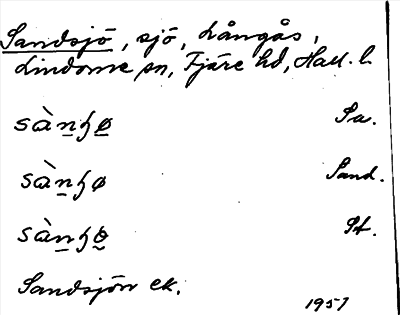 Sandsjö, sjö, Långås,
Lindome sn, Fjäre hd, Hall. l.
sàn̲ɧø̲ Sa.
sàn̲ɧø Sand.
sàn̲ɧø̰ St.
Sandsjön ek.
1957